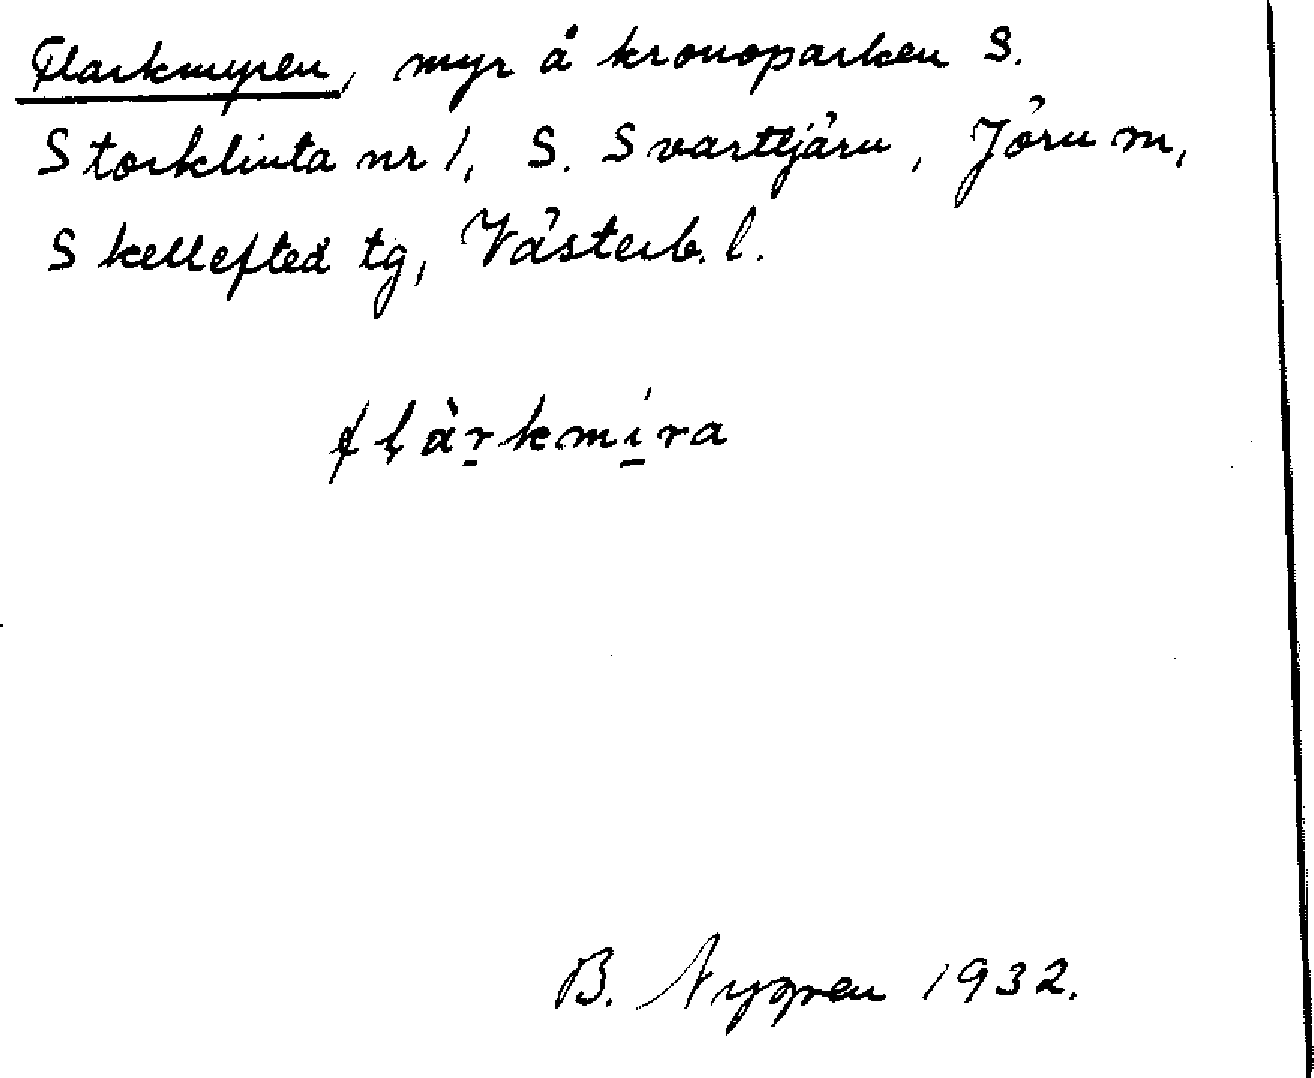 Flarkmyren, myr å kronoparken S.
Storklinta nr 1, S. Svarttjärn, Jörn m,
Skellefteå tg, Västerb. l.
flàrkmíra
B. Nygren 1932.